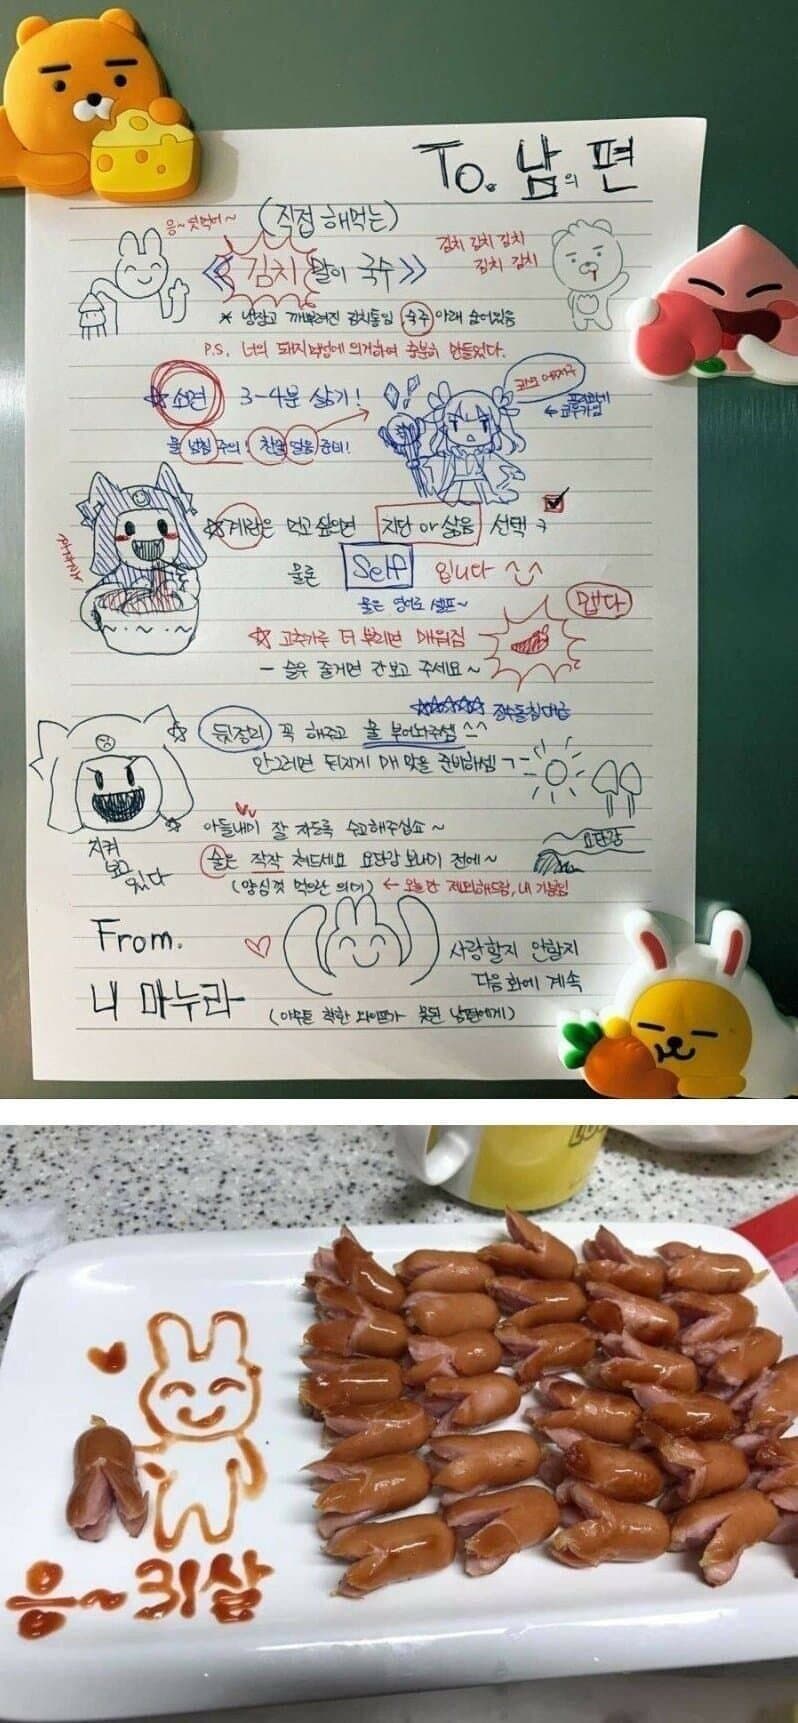 To. 남의 편
응~ 뭣먹어~
(직접 해먹는)
《김치말이 국수》
김치 김치 김치
김치 김치
* 냉장고 깨부여진 김치통임 숙주 아래 숨어있음
P.S. 너의 돼지력에 의거하여 충분히 만들었다.
☆ 소면 3-4분 삶기!
물 넘침 주의! 찬물 얼음 준비!
☆ 계란은 먹고 싶으면 지단 or 삶음 선택
물론 Self 입니다 ^^
물은 영어로 셀프~
맵다
☆ 고추가루 더 뿌리면 매워짐
- 슬슬 졸거면 간보고 주세요~
☆ 뒷정리 꼭 해주고 물 부어놔주셈 ^^
안그러면 뒤지게 매 맞을 준비하셈
☆ 아들내미 잘 자도록 수고해주십쇼~
지켜
보고
있다
술은 작작 처드세요 요단강 보내기 전에~
요단강
(양심껏 먹으란 의미) ← 오늘만 제외해드림, 내 기분임
From.
내 마누라
사랑할지 안할지
다음화에 계속
(아주 착한 와이프가 못된 남편에게)
응~31살